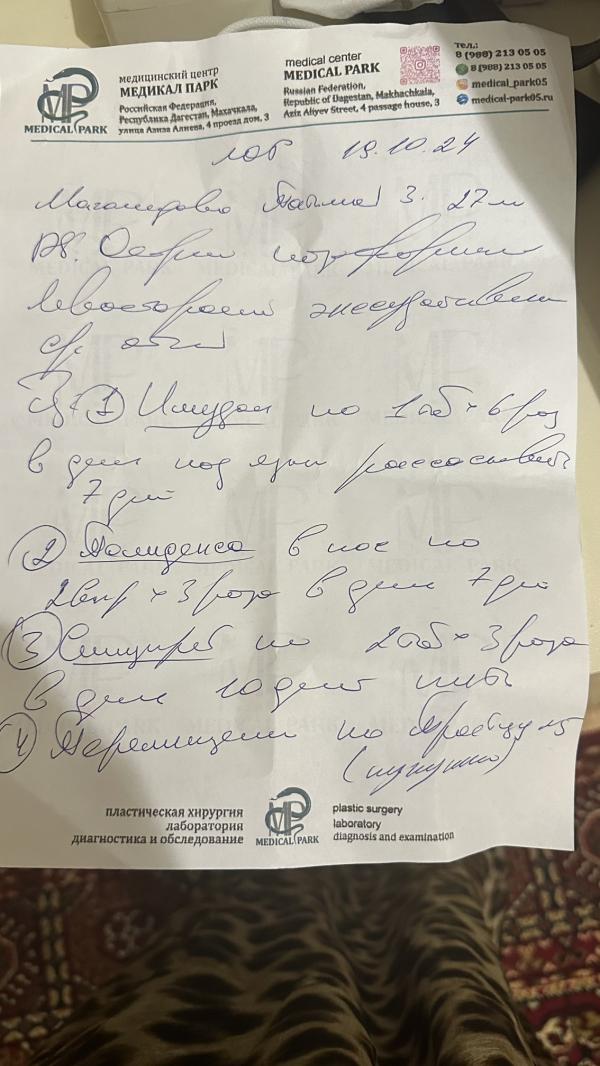 медицинский центр
МЕДИКАЛ ПАРК
Российская Федерация,
Республика Дагестан, Махачкала,
улица Азиза Алиева, 4 проезд дом, 3
MEDICAL PARK
medical center
MEDICAL PARK
Russian Federation,
Republic of Dagestan, Makhachkala,
Aziz Aliyev Street, 4 passage house, 3
тел.:
8 (988) 213 05 05
8 (988) 213 05 05
medical_park05
medical-park05.ru
ЛОР 19.10.24
З. 27
DS: Острый
левосторонний экссудативный
ср. отит
1) Имудон по 1 таб × 6 раз
в день под язык рассасывать
7 дней
2) Полидекса в нос по
2 впр × 3 раза в день 7 дн
3) Синупрет по 2 таб × 3 раза
в день 10 дней пить
4) по 5
пластическая хирургия
лаборатория
диагностика и обследование
MEDICAL PARK
plastic surgery
laboratory
diagnosis and examination